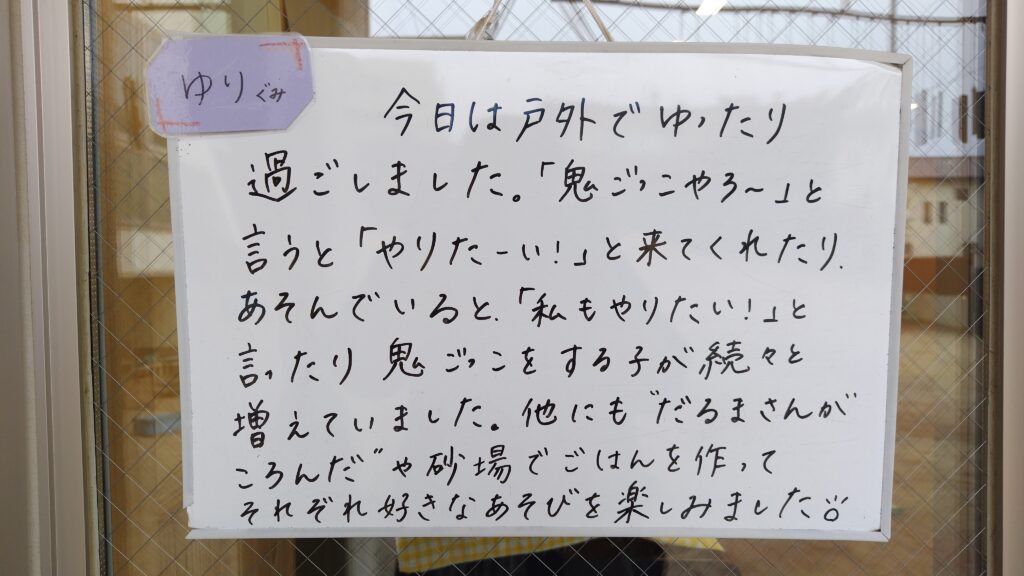 ゆりぐみ
今日は戸外でゆったり
過ごしました。「鬼ごっこやろ〜」と
言うと「やりたーい!」と来てくれたり、
あそんでいると、「私もやりたい!」と
言ったり 鬼ごっこをする子が続々と
増えていました。他にも"だるまさんが
ころんだ"や砂場でごはんを作って
それぞれ好きなあそびを楽しみました